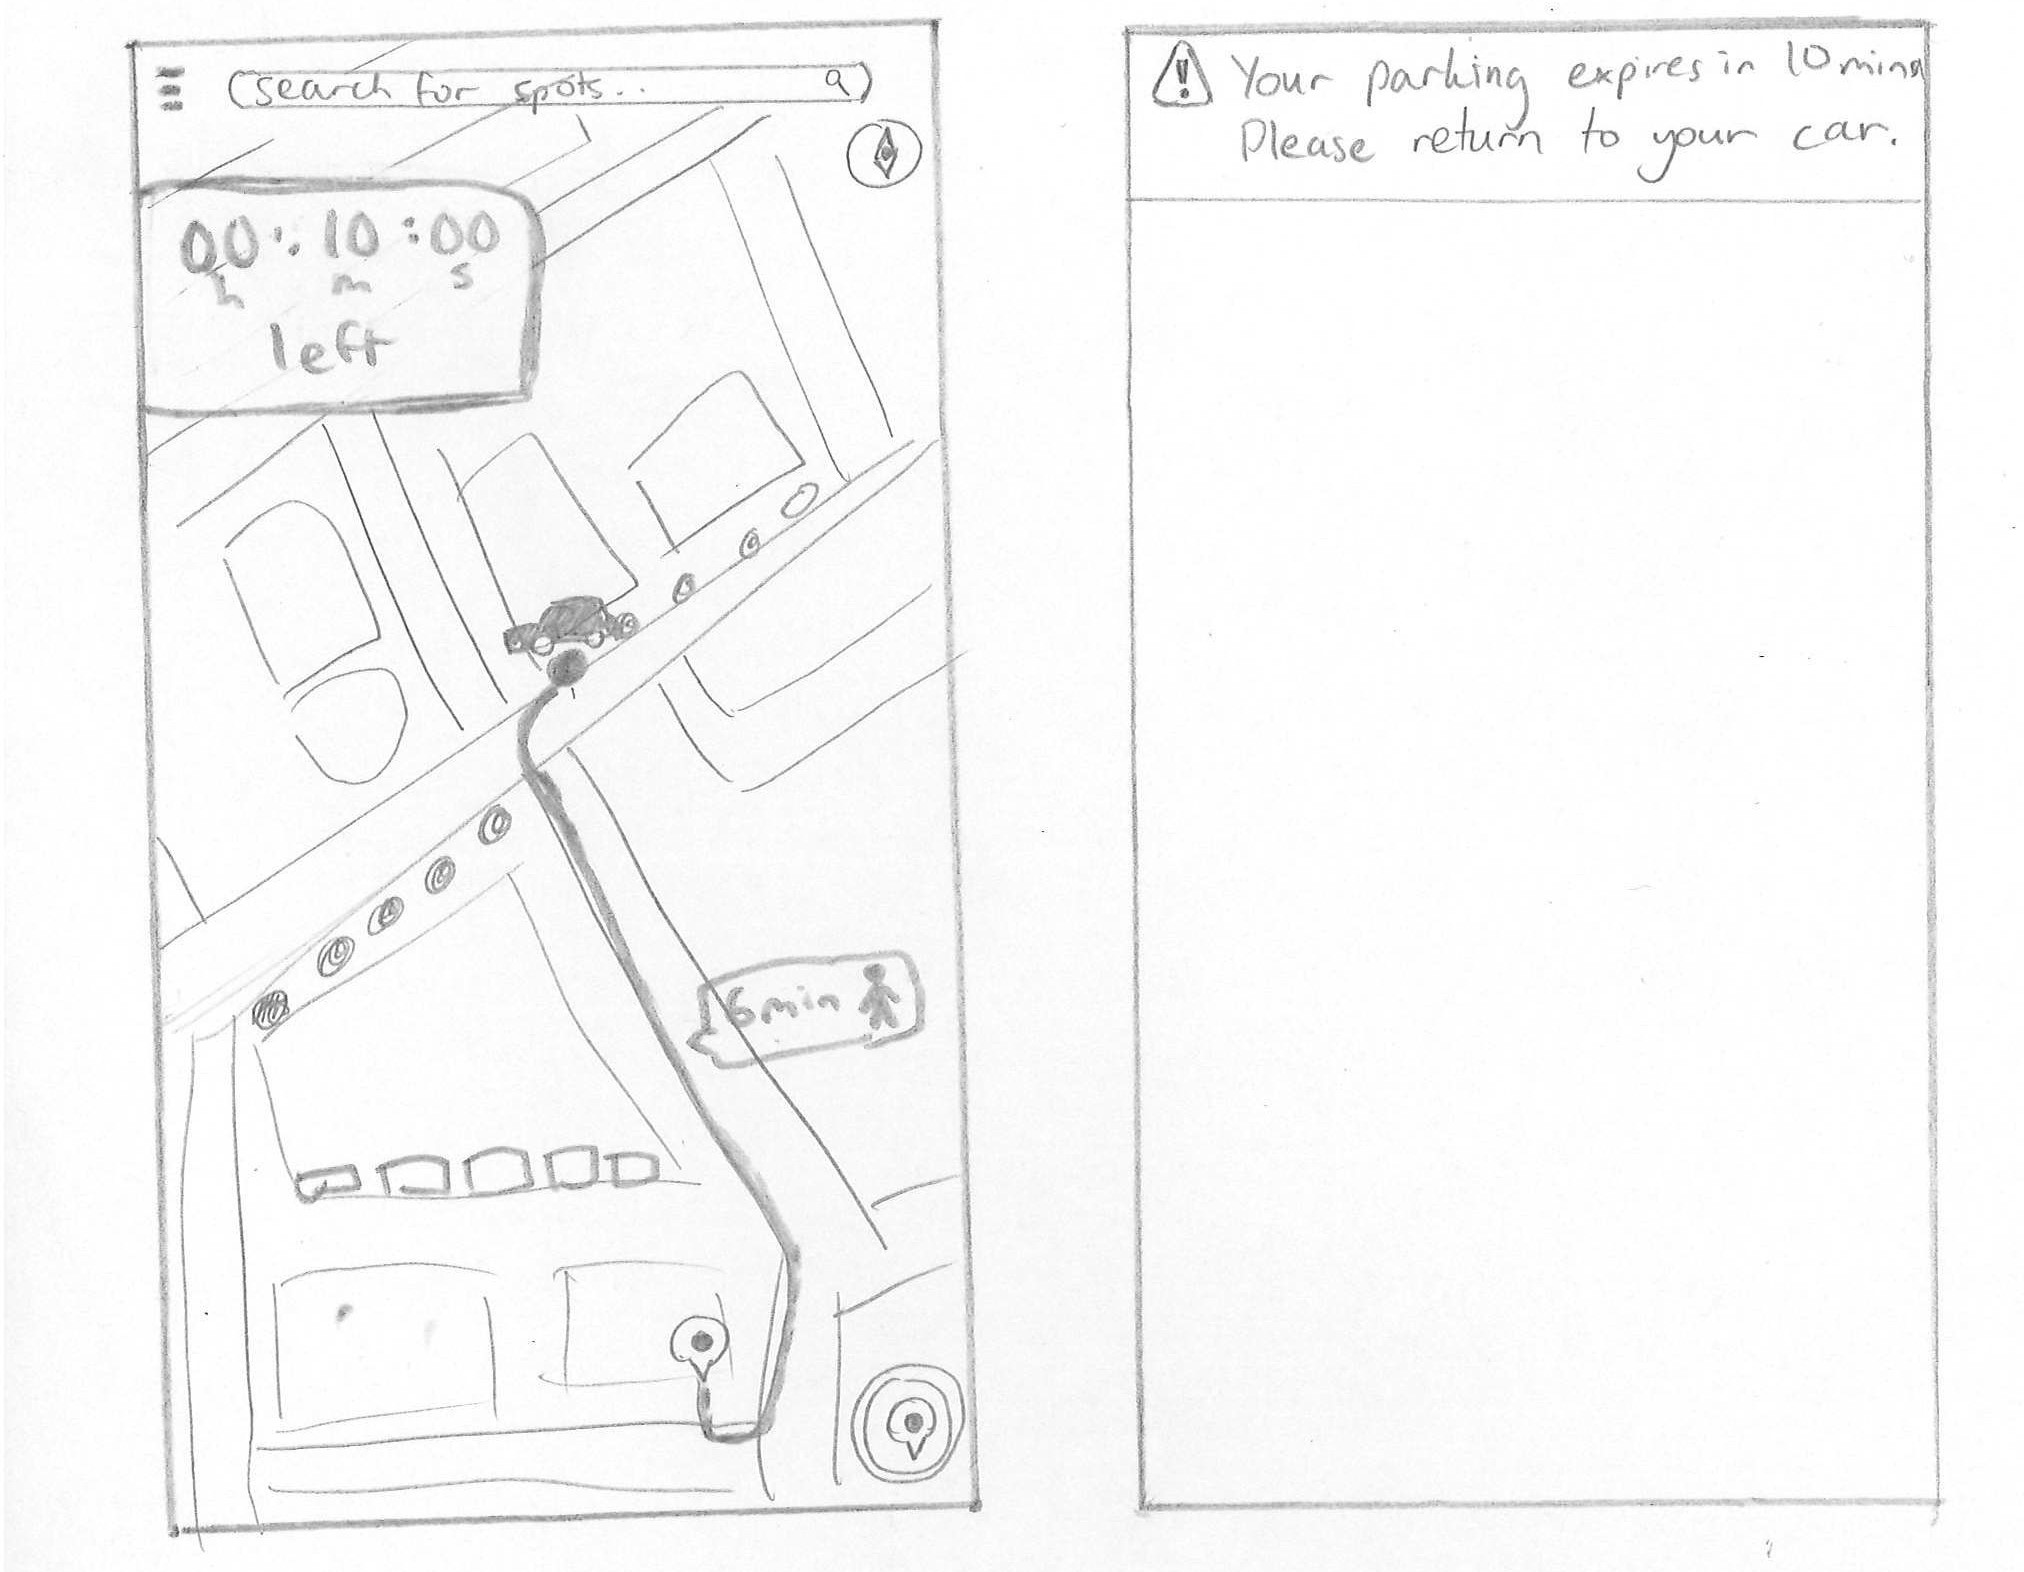 search for spots..
00:10:00
h m s
left
6min
Your parking expires in 10 mins
Please return to your car.